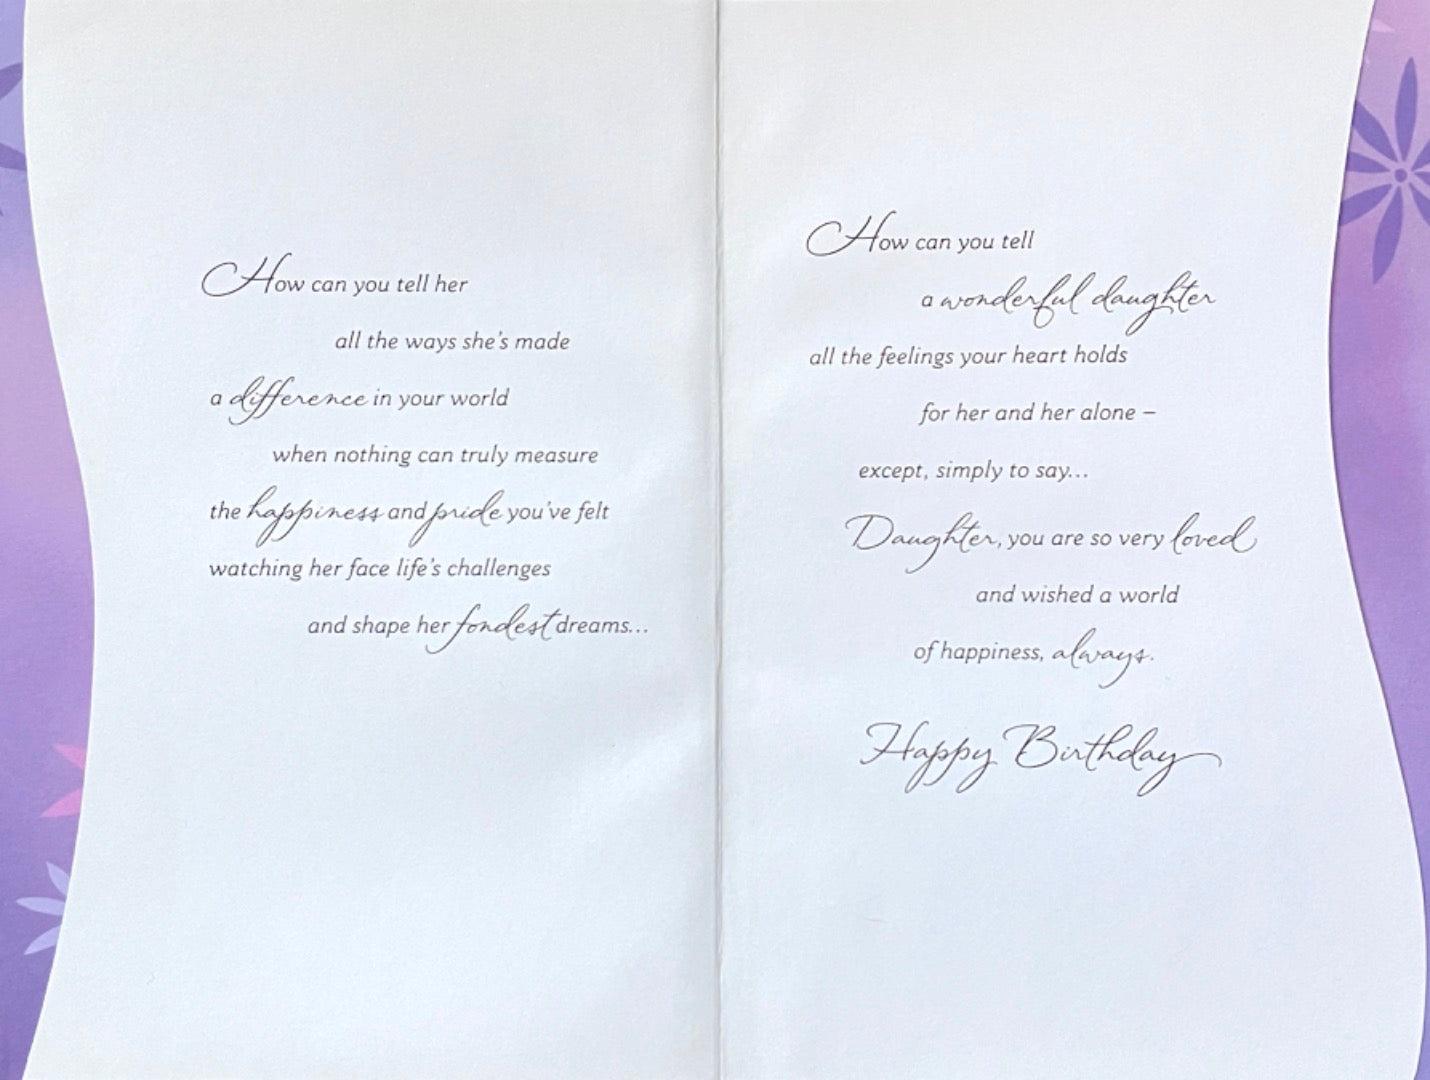 How can you tell her
all the ways she's made
a difference in your world
when nothing can truly measure
the happiness and pride you've felt
watching her face life's challenges
and shape her fondest dreams...
How can you tell
a wonderful daughter
all the feelings your heart holds
for her and her alone –
except, simply to say...
Daughter, you are so very loved
and wished a world
of happiness, always.
Happy Birthday